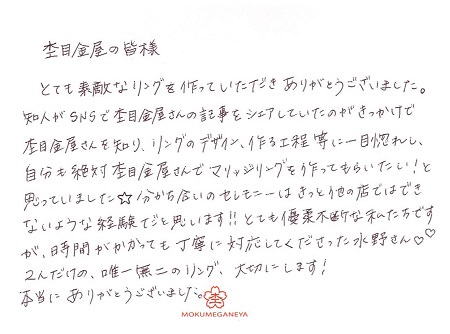 杢目金屋の皆様
とても素敵なリングを作っていただきありがとうございました。
知人がSNSで杢目金屋さんの記事をシェアしていたのがきっかけで
杢目金屋さんを知り、リングのデザイン、作る工程等に一目惚れし、
自分も絶対杢目金屋さんでマリッジリングを作ってもらいたい!と
思っていました☆分かち合いのセレモニーはきっと他の店ではでき
ないような経験だと思います!!とても優柔不断な私たちです
が、時間がかかっても丁寧に対応してくださった水野さん♡♡
2人だけの、唯一無二のリング、大切にします!
本当にありがとうございました。
MOKUMEGANEYA